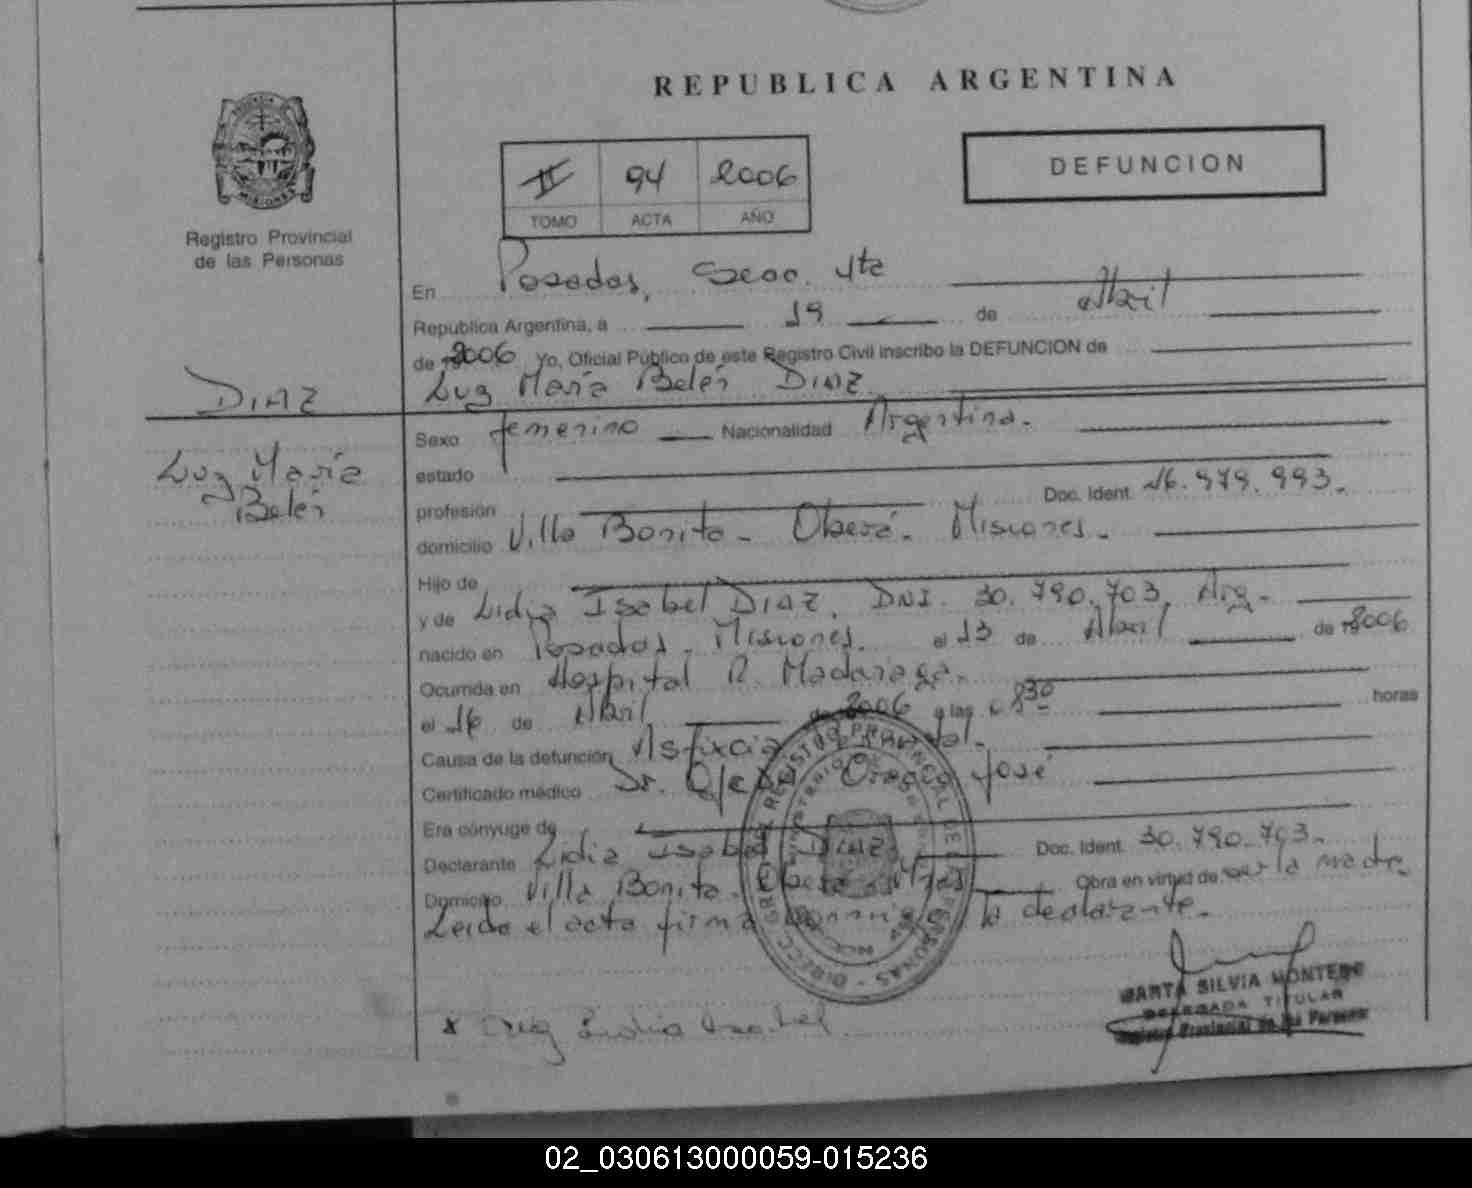 REPUBLICA ARGENTINA
DEFUNCION
II 94 2006
TOMO ACTA AÑO
Registro Provincial
de las Personas
En Posadas, Secc. 4ta
República Argentina, a 19 de Abril
de 2006 Yo, Oficial Público de este Registro Civil inscribo la DEFUNCION de
DIAZ
Luz María Belén DIAZ
Luz María
Belén
Sexo femenino Nacionalidad Argentina.
estado
profesión Doc. Ident.
domicilio Villa Bonita - Oberá. Misiones.
Hijo de
y de Lidia Isabel DIAZ, DNI. 30.790.703, Arg.
nacido en Posadas, Misiones. el 13 de Abril de 2006
Ocurrida en Hospital R. Madariaga.
el 16 de Abril de 2006 a las 08 30 horas
Causa de la defunción Asfixia
Certificado médico Dr. José
Era cónyuge de
Declarante Lidia Isabel DIAZ Doc. Ident. 30.790.703.
Domicilio Villa Bonita. Oberá Mnes Obra en virtud de ser la madre.
Leída el acta firma conmigo la declarante.
MARTA SILVIA MONTERO
DELEGADA TITULAR
Registro Provincial de las Personas
x Isabel
02_030613000059-015236